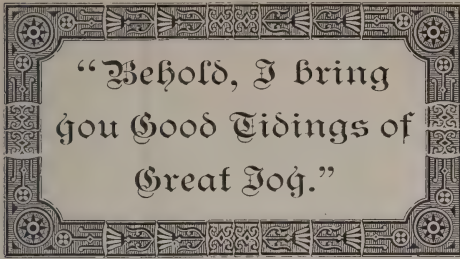 “Behold, I bring
you Good Tidings of
Great Joy.”